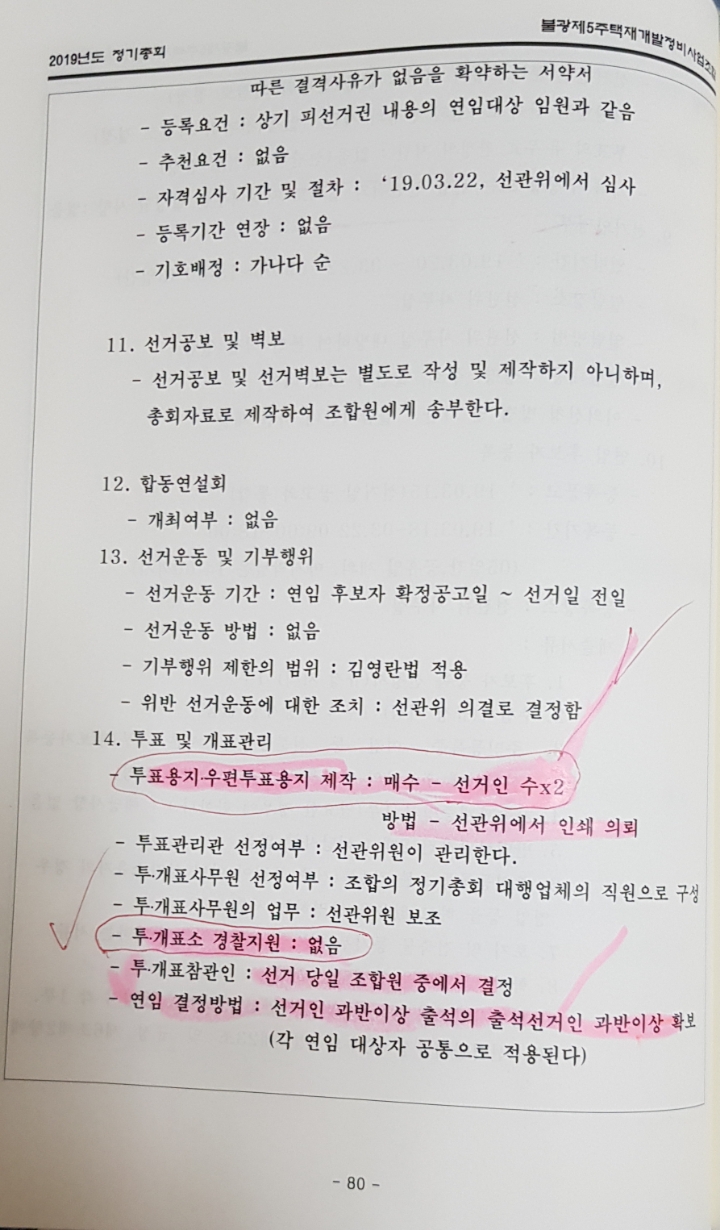 2019년도 정기총회
불광제5주택재개발정비사업조
따른 결격사유가 없음을 확약하는 서약서
- 등록요건 : 상기 피선거권 내용의 연임대상 임원과 같음
- 추천요건 : 없음
- 자격심사 기간 및 절차 : ‘19.03.22, 선관위에서 심사
- 등록기간 연장 : 없음
- 기호배정 : 가나다 순
11. 선거공보 및 벽보
- 선거공보 및 선거벽보는 별도로 작성 및 제작하지 아니하며,
총회자료로 제작하여 조합원에게 송부한다.
12. 합동연설회
- 개최여부 : 없음
13. 선거운동 및 기부행위
- 선거운동 기간 : 연임 후보자 확정공고일 ~ 선거일 전일
- 선거운동 방법 : 없음
- 기부행위 제한의 범위 : 김영란법 적용
- 위반 선거운동에 대한 조치 : 선관위 의결로 결정함
14. 투표 및 개표관리
- 투표용지·우편투표용지 제작 : 매수 - 선거인 수x2
방법 - 선관위에서 인쇄 의뢰
- 투표관리관 선정여부 : 선관위원이 관리한다.
- 투·개표사무원 선정여부 : 조합의 정기총회 대행업체의 직원으로 구성
- 투·개표사무원의 업무 : 선관위원 보조
- 투·개표소 경찰지원 : 없음
- 투·개표참관인 : 선거 당일 조합원 중에서 결정
- 연임 결정방법 : 선거인 과반이상 출석의 출석선거인 과반이상 확보
(각 연임 대상자 공통으로 적용된다)
- 80 -